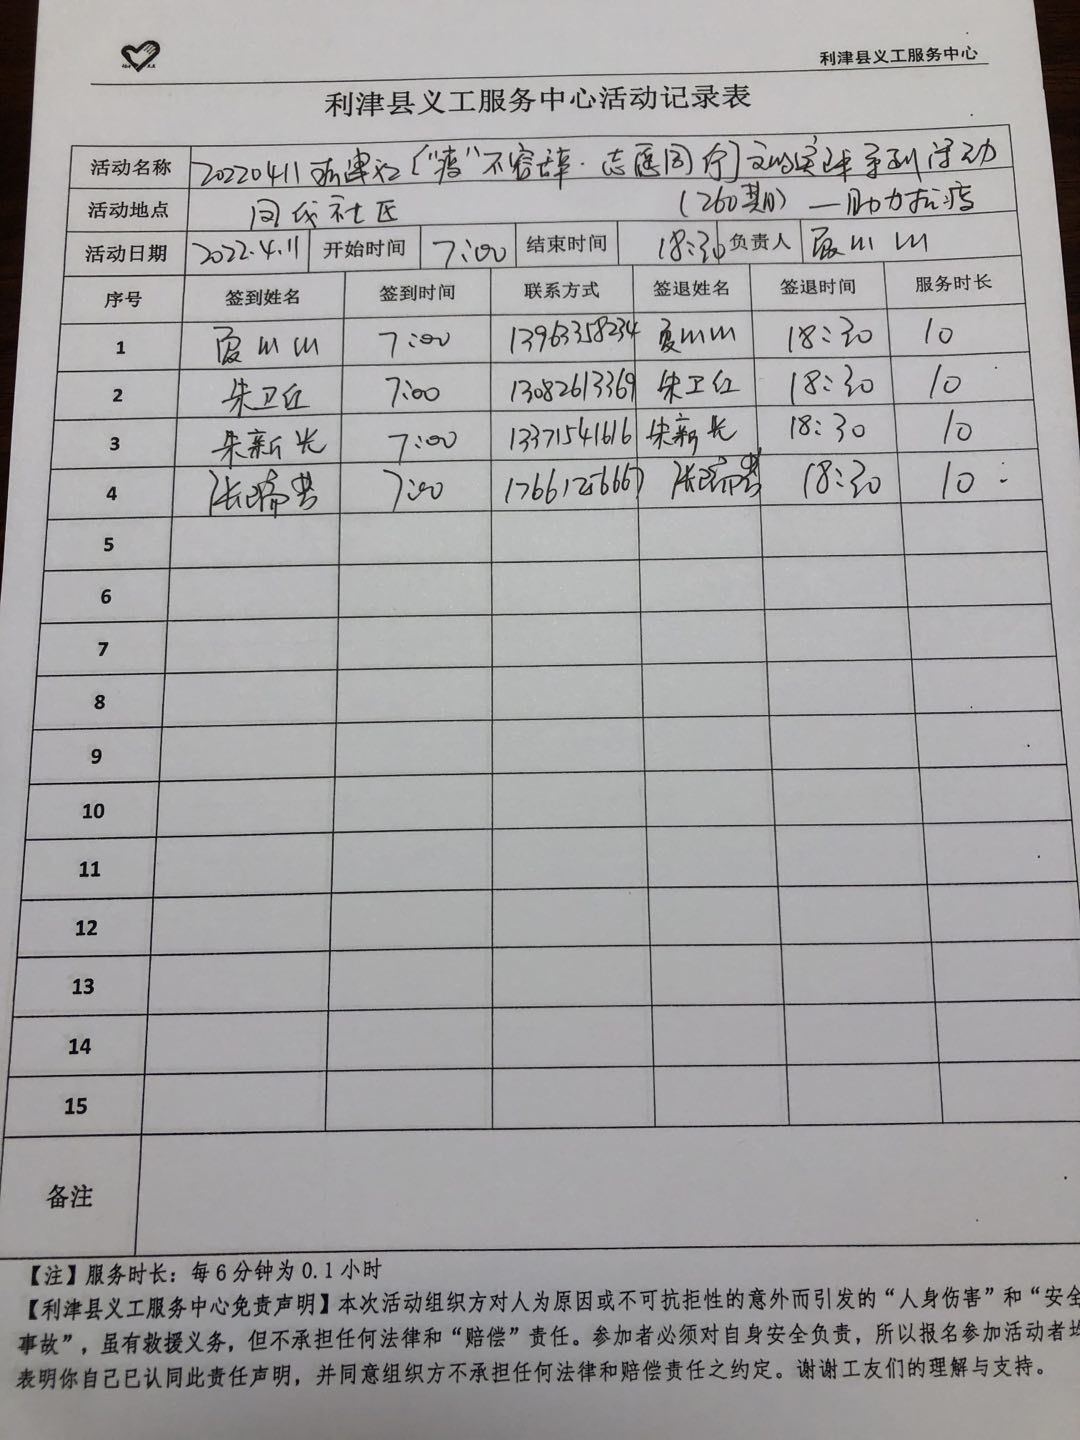 利津县义工服务中心
利津县义工服务中心活动记录表
活动名称 20220411 利津义工["疫"不容辞·志愿同行]文明实践系列活动
活动地点 同成社区 (260期)—助力抗疫
活动日期 2022.4.11 开始时间 7:00 结束时间 18:30 负责人 夏山山
序号 签到姓名 签到时间 联系方式 签退姓名 签退时间 服务时长
1 夏山山 7:00 13963358234 夏山山 18:30 10
2 朱卫红 7:00 13082613369 朱卫红 18:30 10
3 朱新光 7:00 13371541616 朱新光 18:30 10
4 张瑞芹 7:00 17661256667 张瑞芹 18:30 10
5
6
7
8
9
10
11
12
13
14
15
备注
【注】服务时长：每6分钟为0.1小时
【利津县义工服务中心免责声明】本次活动组织方对人为原因或不可抗拒性的意外而引发的“人身伤害”和“安全
事故”，虽有救援义务，但不承担任何法律和“赔偿”责任。参加者必须对自身安全负责，所以报名参加活动者均
表明你自己已认同此责任声明，并同意组织方不承担任何法律和赔偿责任之约定。谢谢工友们的理解与支持。